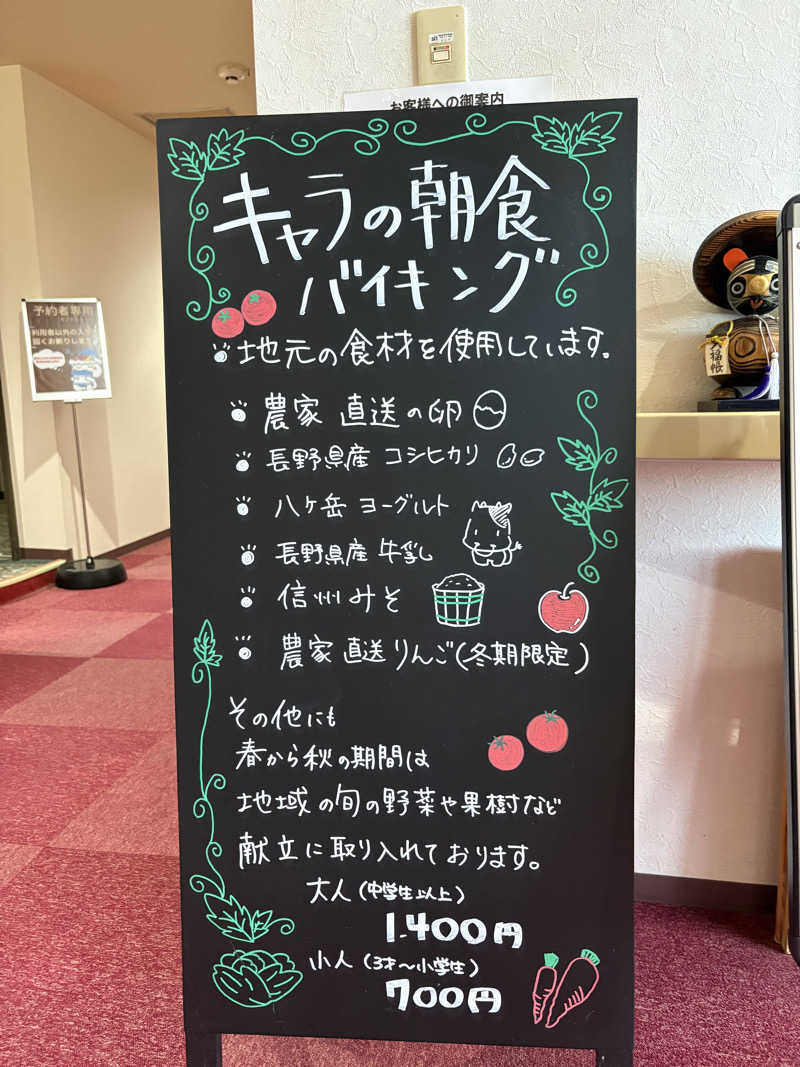 お客様への御案内
キャラの朝食
バイキング
地元の食材を使用しています。
農家 直送の卵
長野県産 コシヒカリ
八ケ岳 ヨーグルト
長野県産 牛乳
信州みそ
農家 直送りんご(冬期限定)
その他にも
春から秋の期間は
地域の旬の野菜や果樹など
献立に取り入れております。
大人(中学生以上)
1.400円
小人(3才~小学生)
700円
予約者専用
利用者以外の入
固くお断りしま
福帳